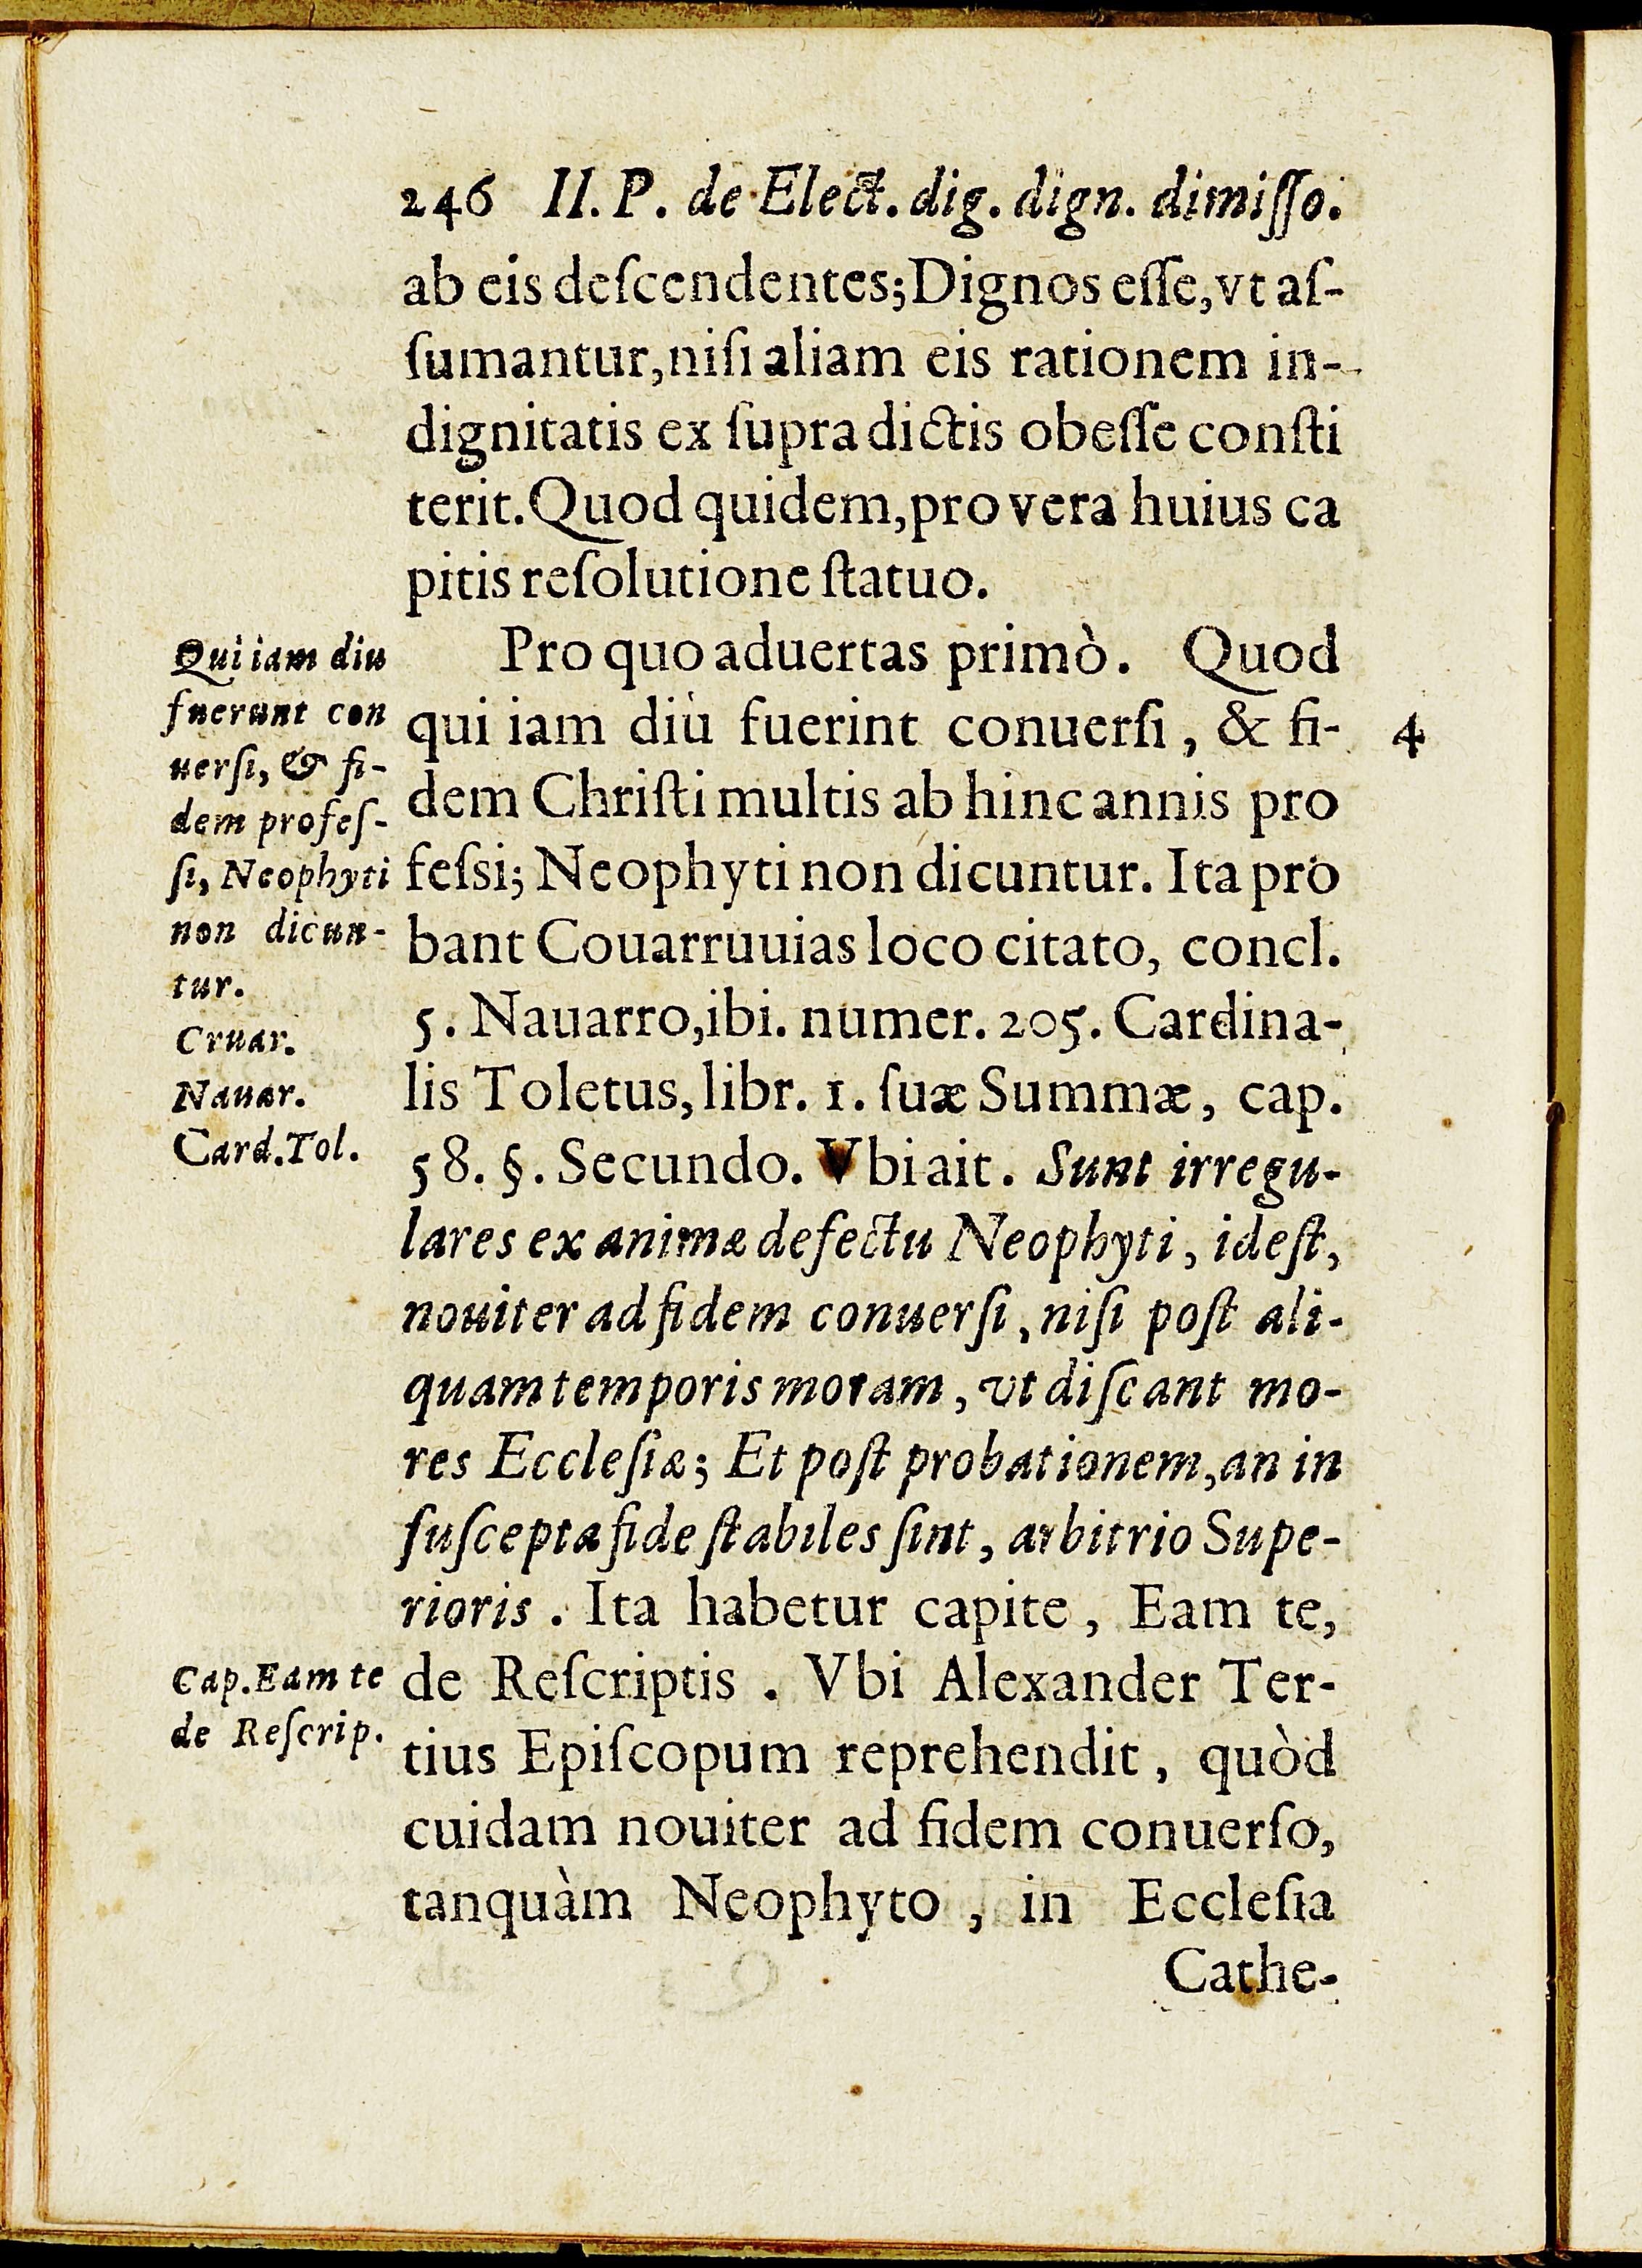 246 II. P. de Elect. dig. dign. dimiſſo.
ab eis deſcendentes; Dignos eſſe, vt aſ-
ſumantur, niſi aliam eis rationem in-
dignitatis ex ſupra dictis obeſſe conſti
terit. Quod quidem, pro vera huius ca
pitis reſolutione ſtatuo.
Pro quo aduertas primò. Quod
qui iam diù fuerint conuerſi, & fi-
dem Chriſti multis ab hinc annis pro
feſsi; Neophyti non dicuntur. Ita pro
bant Couarruuias loco citato, concl.
5. Nauarro, ibi. numer. 205. Cardina-
lis Toletus, libr. 1. ſuæ Summæ, cap.
58. §. Secundo. Vbi ait. Sunt irregu-
lares ex animæ defectu Neophyti, ideſt,
nouiter ad fidem conuerſi, niſi poſt ali-
quam temporis moram, vt diſcant mo-
res Eccleſiæ; Et poſt probationem, an in
ſuſcepta fide ſtabiles ſint, arbitrio Supe-
rioris. Ita habetur capite, Eam te,
de Reſcriptis. Vbi Alexander Ter-
tius Epiſcopum reprehendit, quòd
cuidam nouiter ad fidem conuerſo,
tanquàm Neophyto, in Eccleſia
Cathe-
Qui iam diu
fuerunt con
uerſi, & fi-
dem profeſ-
ſi, Neophyti
non dicun-
tur.
Cruar.
Nauar.
Card. Tol.
Cap. Eam te
de Reſcrip.
4